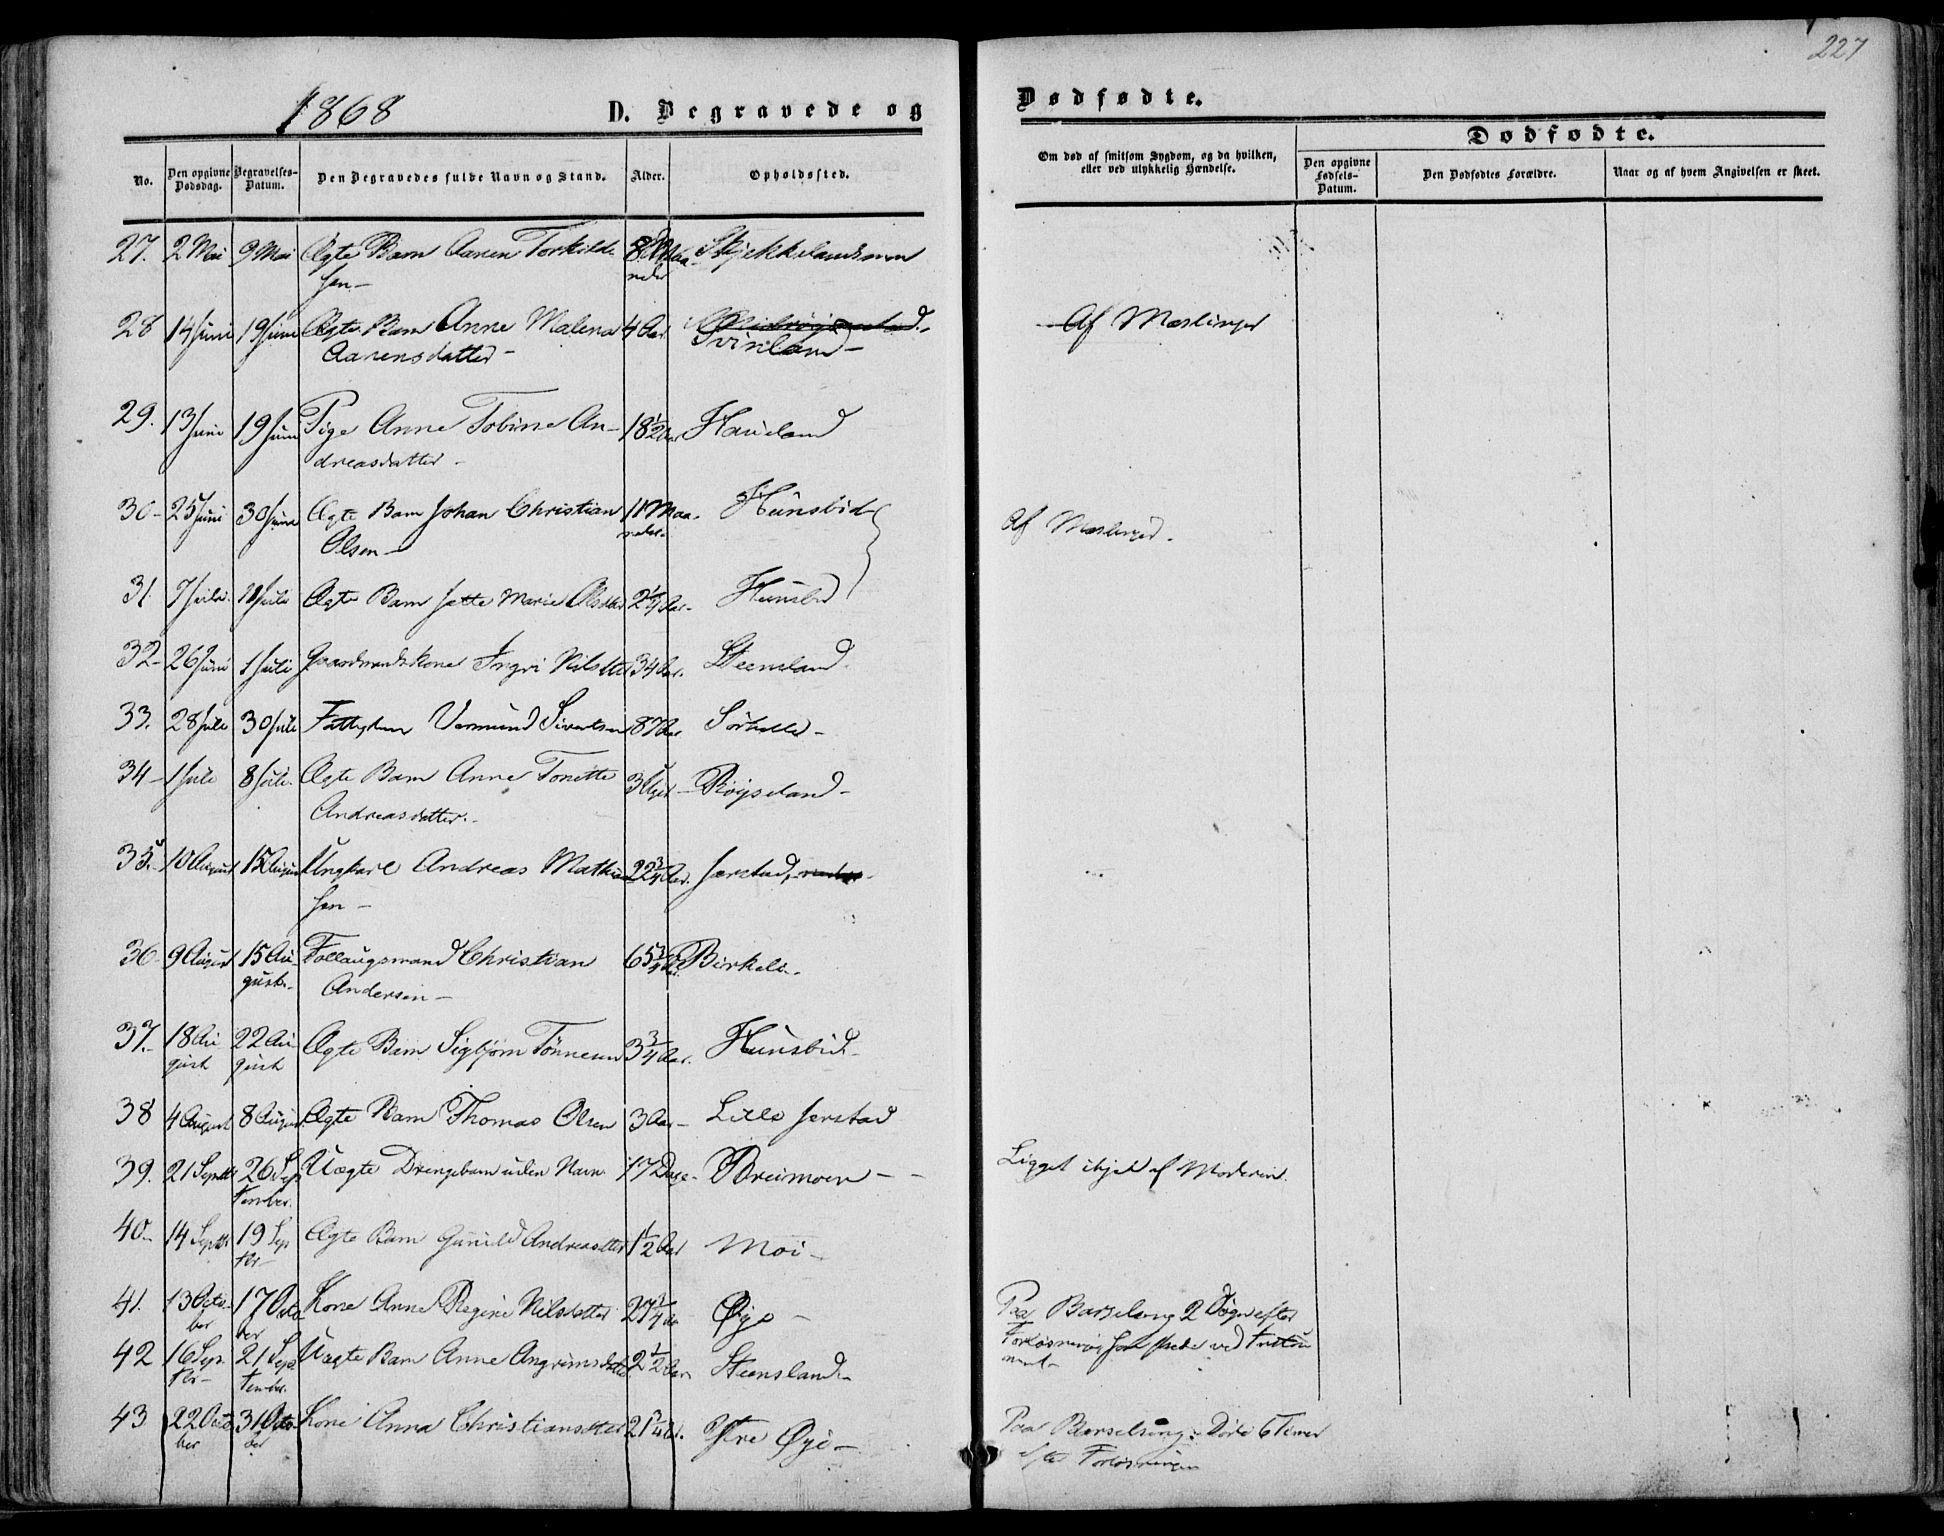 227
1868
D. Begravede og
Dødfødte.
No.
Den opgivne Dødsdag.
Begravelses-Datum.
Den Begravedes fulde Navn og Stand.
Alder.
Opholdssted.
Om død af smitsom Sygdom, og da hvilken,
eller ved ulykkelig Hændelse.
Dødfødte.
Den opgivne Fødsels-Datum.
Den Dødfødtes Forældre.
Naar og af hvem Angivelsen er skeet.
27. 2 Mai 9 Mai Ægte Barn Aanen Torkild-
sen 8 Maa-
neder
28 14 Juni 19 Juni Ægte Barn Anne Malena 4 Aar
Aanensdatter Svinland
Af Meslinger
29. 13 Juni 19 Juni Pige Anne Tobine An- 18 1/2 Aar Haueland
dreasdatter
30 25 Juni 30 Juni Ægte Barn Johan Christian 11 Maa- Hunsbid
Olsen neder
Af Meslinger.
31. 7 Juli 11 Juli Ægte Barn Jette Marie Olsdtter 2 1/4 Aar Hunsbid
32 26 Juni 1 Juli Gaardmandskone Ingri Nilsdtter 34 Aar. Steensland.
33. 28 Juli 30 Juli Fattiglem Vermund Sivertsen 87 Aar
34 1 Juli 8 Juli Ægte Barn Anne Tonette 3 Uger Røyseland
Andreasdatter.
35. 10 August 15 August Ungkarl Andreas Mathias 22 3/4 Aar. Jerstad,
sen
36 9 August 15 Au- Follaugsmand Christian 65 3/4 Aar Birkeland
gust Andersen
37. 18 Au 22 Au Ægte Barn Sigbjørn Tønnesen 3 3/4 Aar. Hunsbid
gust gust
38 4 August 8 August Ægte Barn Thomas Olsen 3 Aar Lille Jerstad
39. 21 Septbr 26 Sep Uægte Drengebarn uden Navn 17 Dage Breimoen
tember.
Ligget ihjel af Moderen.
40 14 Septbr 19 Sep Ægte Barn Gunild Andreasdtter 1 1/2 Aar Moi
tbr
41. 13 Octo- 17 Octo Kone Anne Regine Nilsdatter 27 3/4 Aar Øye
ber ber
Paa Barselseng 2 Døgn efter
Forløsningen som skede ved Instru
ment
42 16 Sep 21 Sep Uægte Barn Anne Angrimsdatter 2 1/2 Aar Steensland
tbr tember.
43 22 Octo 31 Octo Kone Anna Christiansdtter 21 3/4 Aar. Ytre Øye
ber ber
Paa Barselseng. Døde 6 Timer
efter Forløsningen